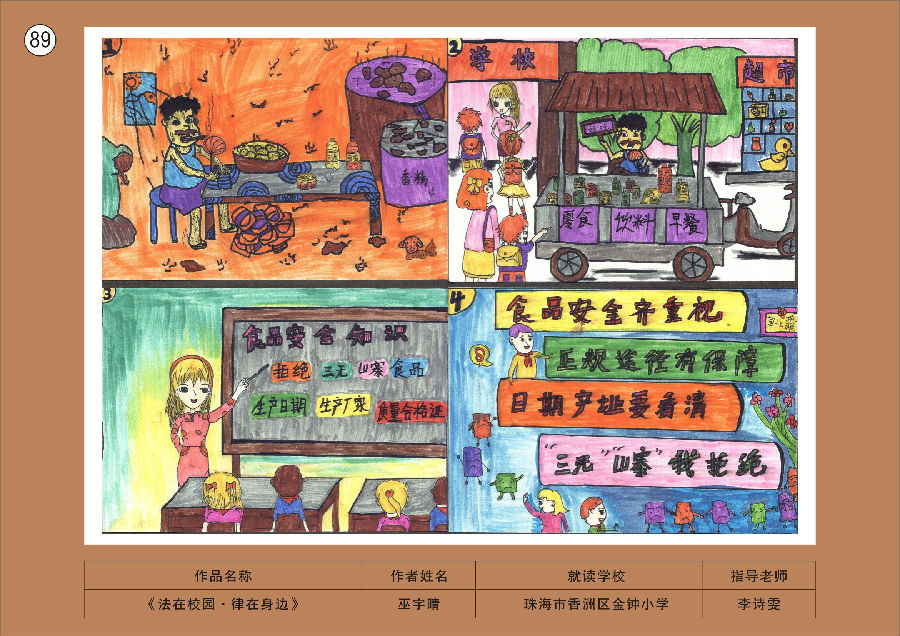 89
1
香精
2
学校
超市
零食 饮料 早餐
3
食品安全知识
拒绝 三无 山寨 食品
生产日期 生产厂家 质量合格证
4
食品安全齐重视
正规途径有保障
日期产址要看清
“三无”“山寨”我拒绝
作品名称 作者姓名 就读学校 指导老师
《法在校园·律在身边》 巫宇晴 珠海市香洲区金钟小学 李诗雯